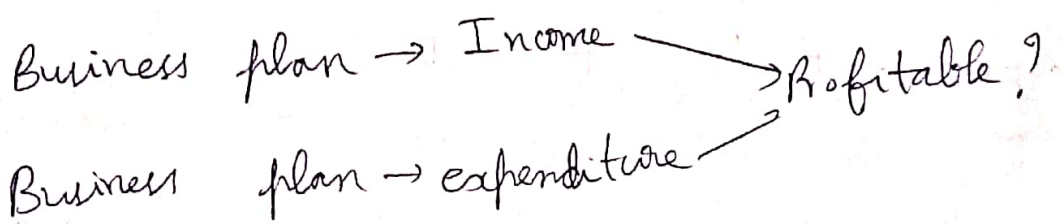 Business plan → Income → Profitable?
Business plan → expenditure